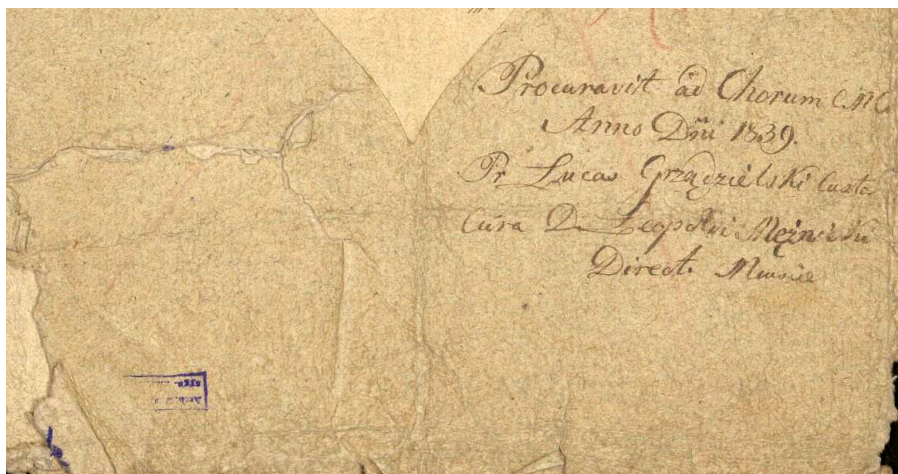 Procuravit ad Chorum C.M.C.
Anno Dñi 1839.
Pr Lucas Grządzielski Custo
Cura D. Leopoldi
Direct. Musice